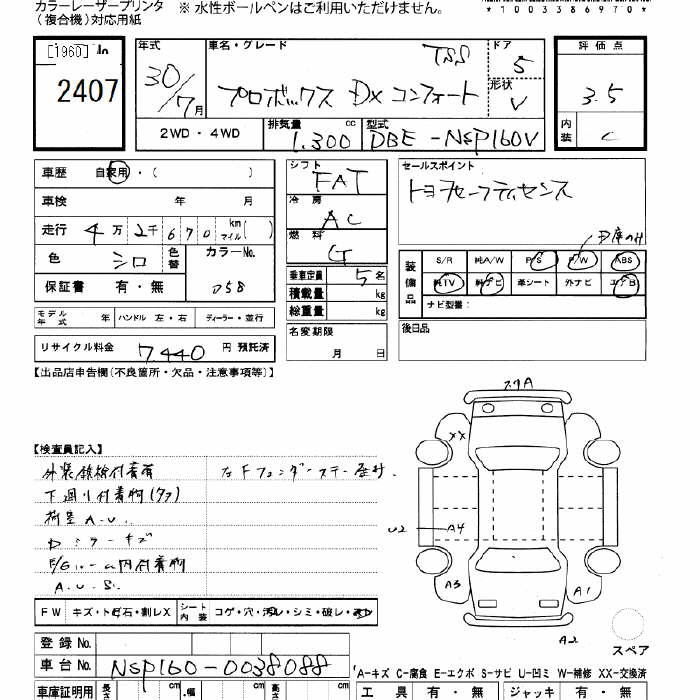 カラーレーザープリンタ
(複合機)対応用紙
※ 水性ボールペンはご利用いただけません。
*1003386970*
[1960]
2407
年式
30/7月
車名・グレード
TSS
プロボックス DX コンフォート
ドア
5
形状
V
評価点
3.5
内装
C
2WD・4WD
排気量
1.300 cc
型式
DBE-NSP160V
車歴 自家用・( )
車検 年 月
走行 4万2千670 km マイル( )
色 シロ 色替 カラーNo.
058
保証書 有・無
モデル年式 年 ハンドル 左・右 ディーラー・並行
リサイクル料金 7.440 円 預託済
シフト
FAT
冷房
AC
燃料
G
乗車定員 5 名
積載量 kg
総重量 kg
名変期限
月 日
セールスポイント
トヨタセーフティセンス
装備品
S/R 純A/W P/S P/W ABS
純TV 純ナビ 革シート 外ナビ エアB
ナビ型番:
後日品
【出品店申告欄(不良箇所・欠品・注意事項等)】
【検査員記入】
下廻り付着物
A.U.
キズ
E/Gルーム内付着物
A.U.S.
XX
U2
A4
A3
A1
A2
スペア
FW キズ・トビ石・割レX シート内装 コゲ・穴・汚レ・シミ・破レ・
登録 No.
車台 No. NSP160-0038088
A-キズ C-腐食 E-エクボ S-サビ U-凹ミ W-補修 XX-交換済
車庫証明用 長さ cm 幅 cm 高さ cm
工具 有・無 ジャッキ 有・無